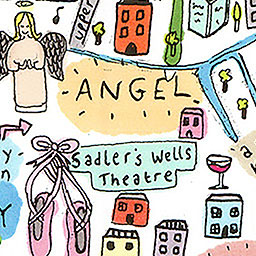 UPPER
ANGEL
Sadler's Wells
Theatre